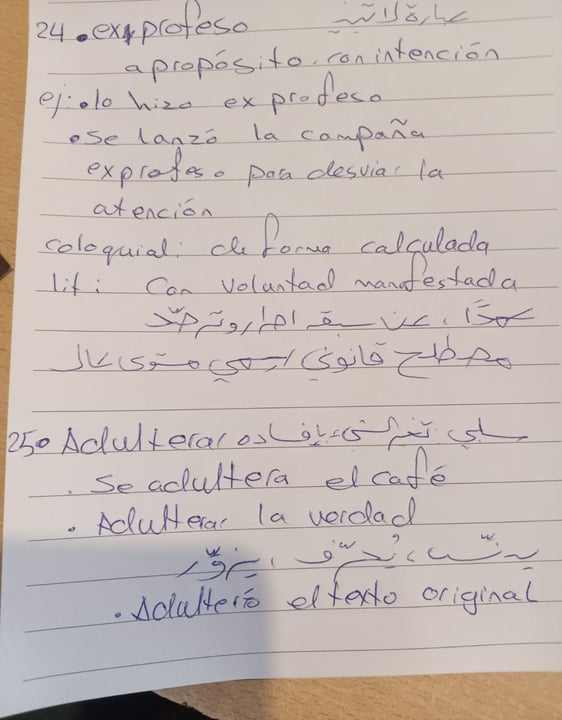 24. ex profeso عبارة لاتينية
a propósito. con intención
ej: lo hizo ex profeso
• se lanzó la campaña
ex profeso para desviar la
atención
coloquial: de forma calculada
lit: Con voluntad manifestada
عمدًا، عن سبق اصرار وترصّد
مصطلح قانوني رسمي مستوى عال
25. Adulterar سلبي تغير الشيء بإفساده
. Se adultera el café
. Adulterar la verdad
يغشّ، يُحرّف، يزوّر
. Adulteró el texto original